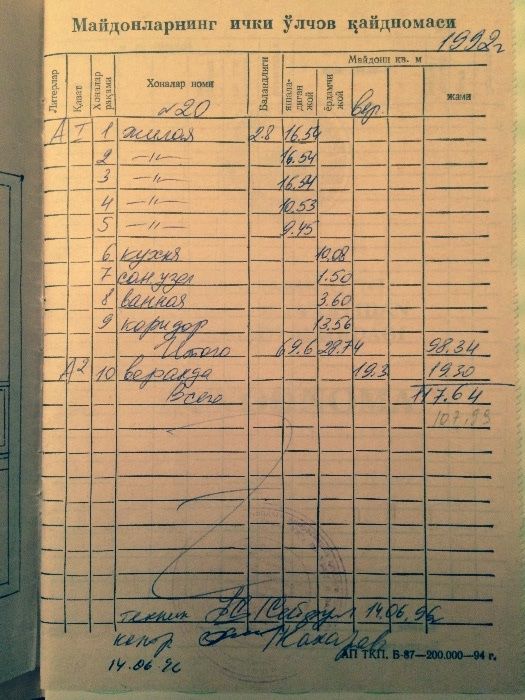 Майдонларнинг ички ўлчов қайдномаси
1992г
Литерлар Қават Хоналар рақами Хоналар номи Баландлиги Майдони кв. м
яшала-диган жой ёрдамчи жой вер. жами
№20
А I 1 жилая 2.8 16.54
2 —"— 16.54
3 —"— 16.54
4 —"— 10.53
5 —"— 9.45
6 кухня 10.08
7 сан узел 1.50
8 ванная 3.60
9 коридор 13.56
Итого 69.6 28.74 98.34
А2 10 веранда 19.3 19.30
Всего 117.64
107,99
техник 14.06.96
14.06.96
АП ТКП. Б-87—200.000—94 г.